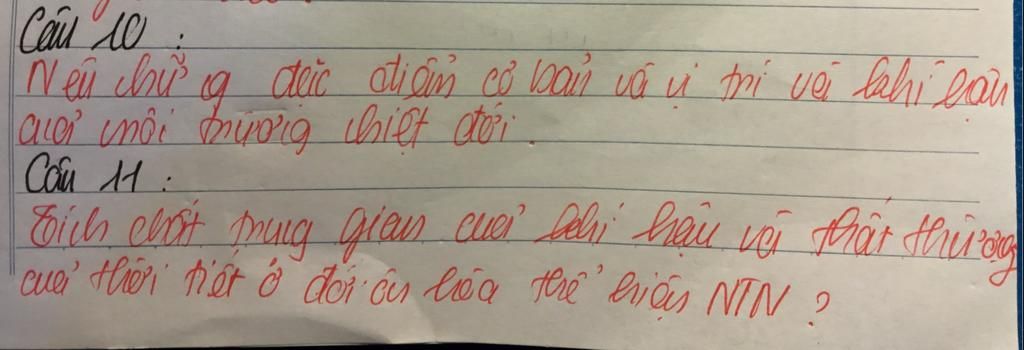 Câu 10 :
Nêu những đặc điểm cơ bản về vị trí và khí hậu
của môi trường nhiệt đới.
Câu 11 :
Tính chất trung gian của khí hậu và thất thường
của thời tiết ở đới ôn hòa thể hiện NTN ?